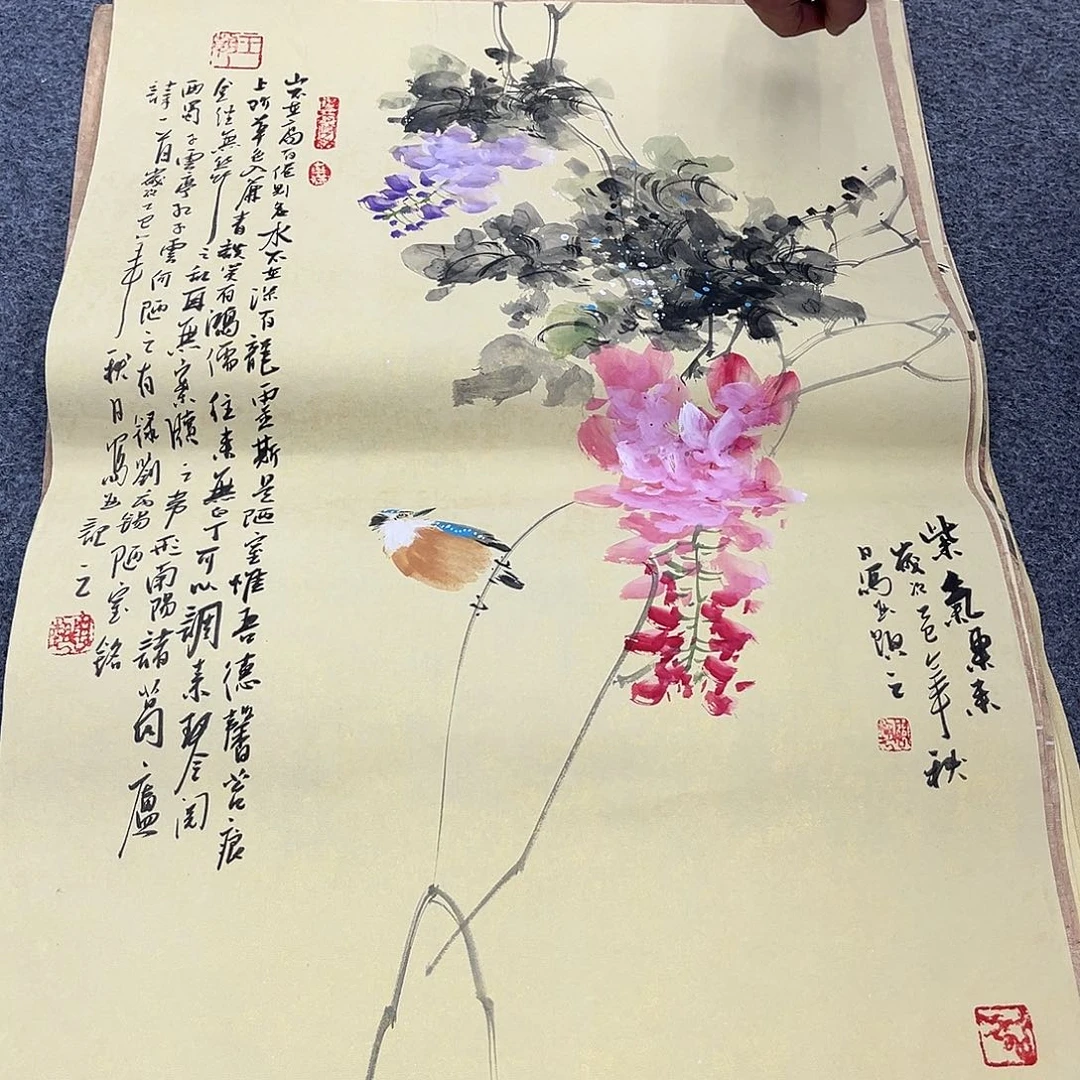 紫氣東來
歲次乙巳年秋
日寫並題之
山不在高有仙則名水不在深有龍靈斯是陋室惟吾德馨苔痕
上階草色入簾青談笑有鴻儒往來無白丁可以調素琴閱
金經無絲竹之亂耳無案牘之勞形南陽諸葛廬
西蜀子雲亭孔子雲何陋之有錄劉禹錫陋室銘
詩一首歲次乙巳年
秋日寫並記之